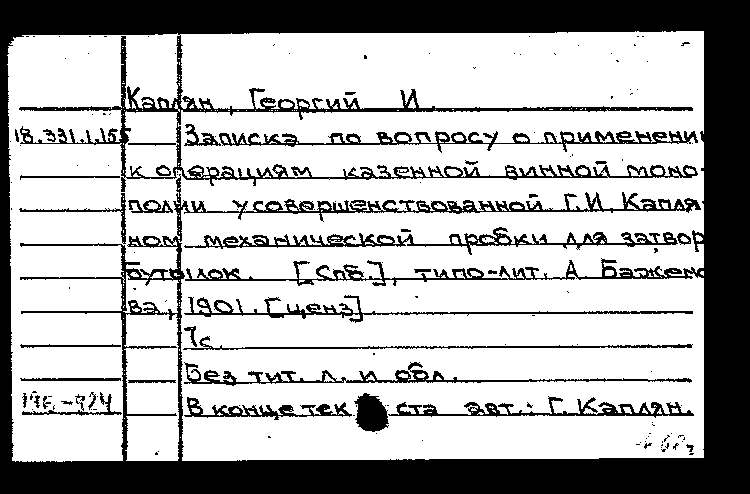 Каплян, Георгий И.
18.331.1.155 Записка по вопросу о применении
к операциям казенной винной моно-
полии усовершенствованной Г.И. Капля-
ном механической пробки для затвор
бутылок. [Спб.], типо-лит. А Бажено
ва, 1901. [ценз]
7с.
Без тит. л. и обл.
19Е-924 В конце текста авт.: Г. Каплян.